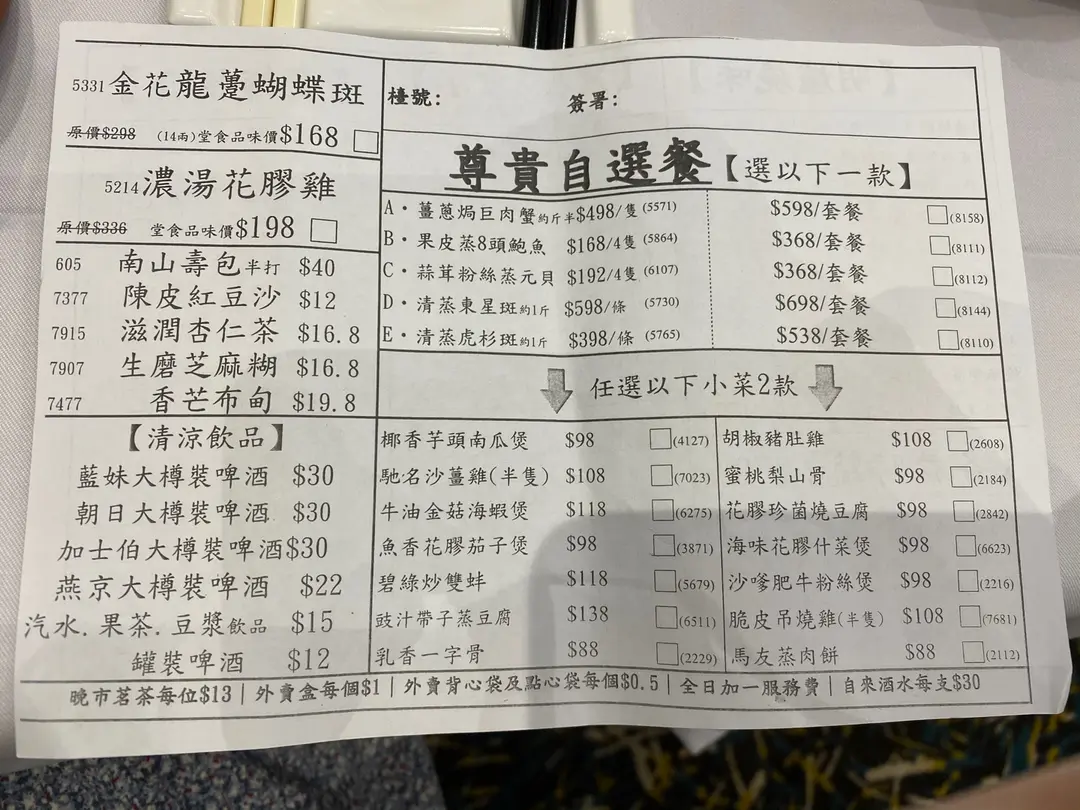 5331金花龍躉蝴蝶斑
原價$298 (14両)堂食品味價$168
5214濃湯花膠雞
原價$336 堂食品味價$198
605 南山壽包半打 $40
7377 陳皮紅豆沙 $12
7915 滋潤杏仁茶 $16.8
7907 生磨芝麻糊 $16.8
7477 香芒布甸 $19.8
【清涼飲品】
藍妹大樽裝啤酒 $30
朝日大樽裝啤酒 $30
加士伯大樽裝啤酒$30
燕京大樽裝啤酒 $22
汽水.果茶.豆漿飲品 $15
罐裝啤酒 $12
檯號: 簽署:
尊貴自選餐【選以下一款】
A·薑蔥焗巨肉蟹約斤半$498/隻(5571) $598/套餐 (8158)
B·果皮蒸8頭鮑魚 $168/4隻(5864) $368/套餐 (8111)
C·蒜茸粉絲蒸元貝 $192/4隻(6107) $368/套餐 (8112)
D·清蒸東星斑約1斤 $598/條(5730) $698/套餐 (8144)
E·清蒸虎杉斑約1斤 $398/條(5765) $538/套餐 (8110)
任選以下小菜2款
椰香芋頭南瓜煲 $98 (4127) 胡椒豬肚雞 $108 (2608)
馳名沙薑雞(半隻) $108 (7023) 蜜桃梨山骨 $98 (2184)
牛油金菇海蝦煲 $118 (6275) 花膠珍菌燒豆腐 $98 (2842)
魚香花膠茄子煲 $98 (3871) 海味花膠什菜煲 $98 (6623)
碧綠炒雙蚌 $118 (5679) 沙嗲肥牛粉絲煲 $98 (2216)
豉汁帶子蒸豆腐 $138 (6511) 脆皮吊燒雞(半隻) $108 (7681)
乳香一字骨 $88 (2229) 馬友蒸肉餅 $88 (2112)
晚市茗茶每位$13｜外賣盒每個$1｜外賣背心袋及點心袋每個$0.5｜全日加一服務費｜自來酒水每支$30